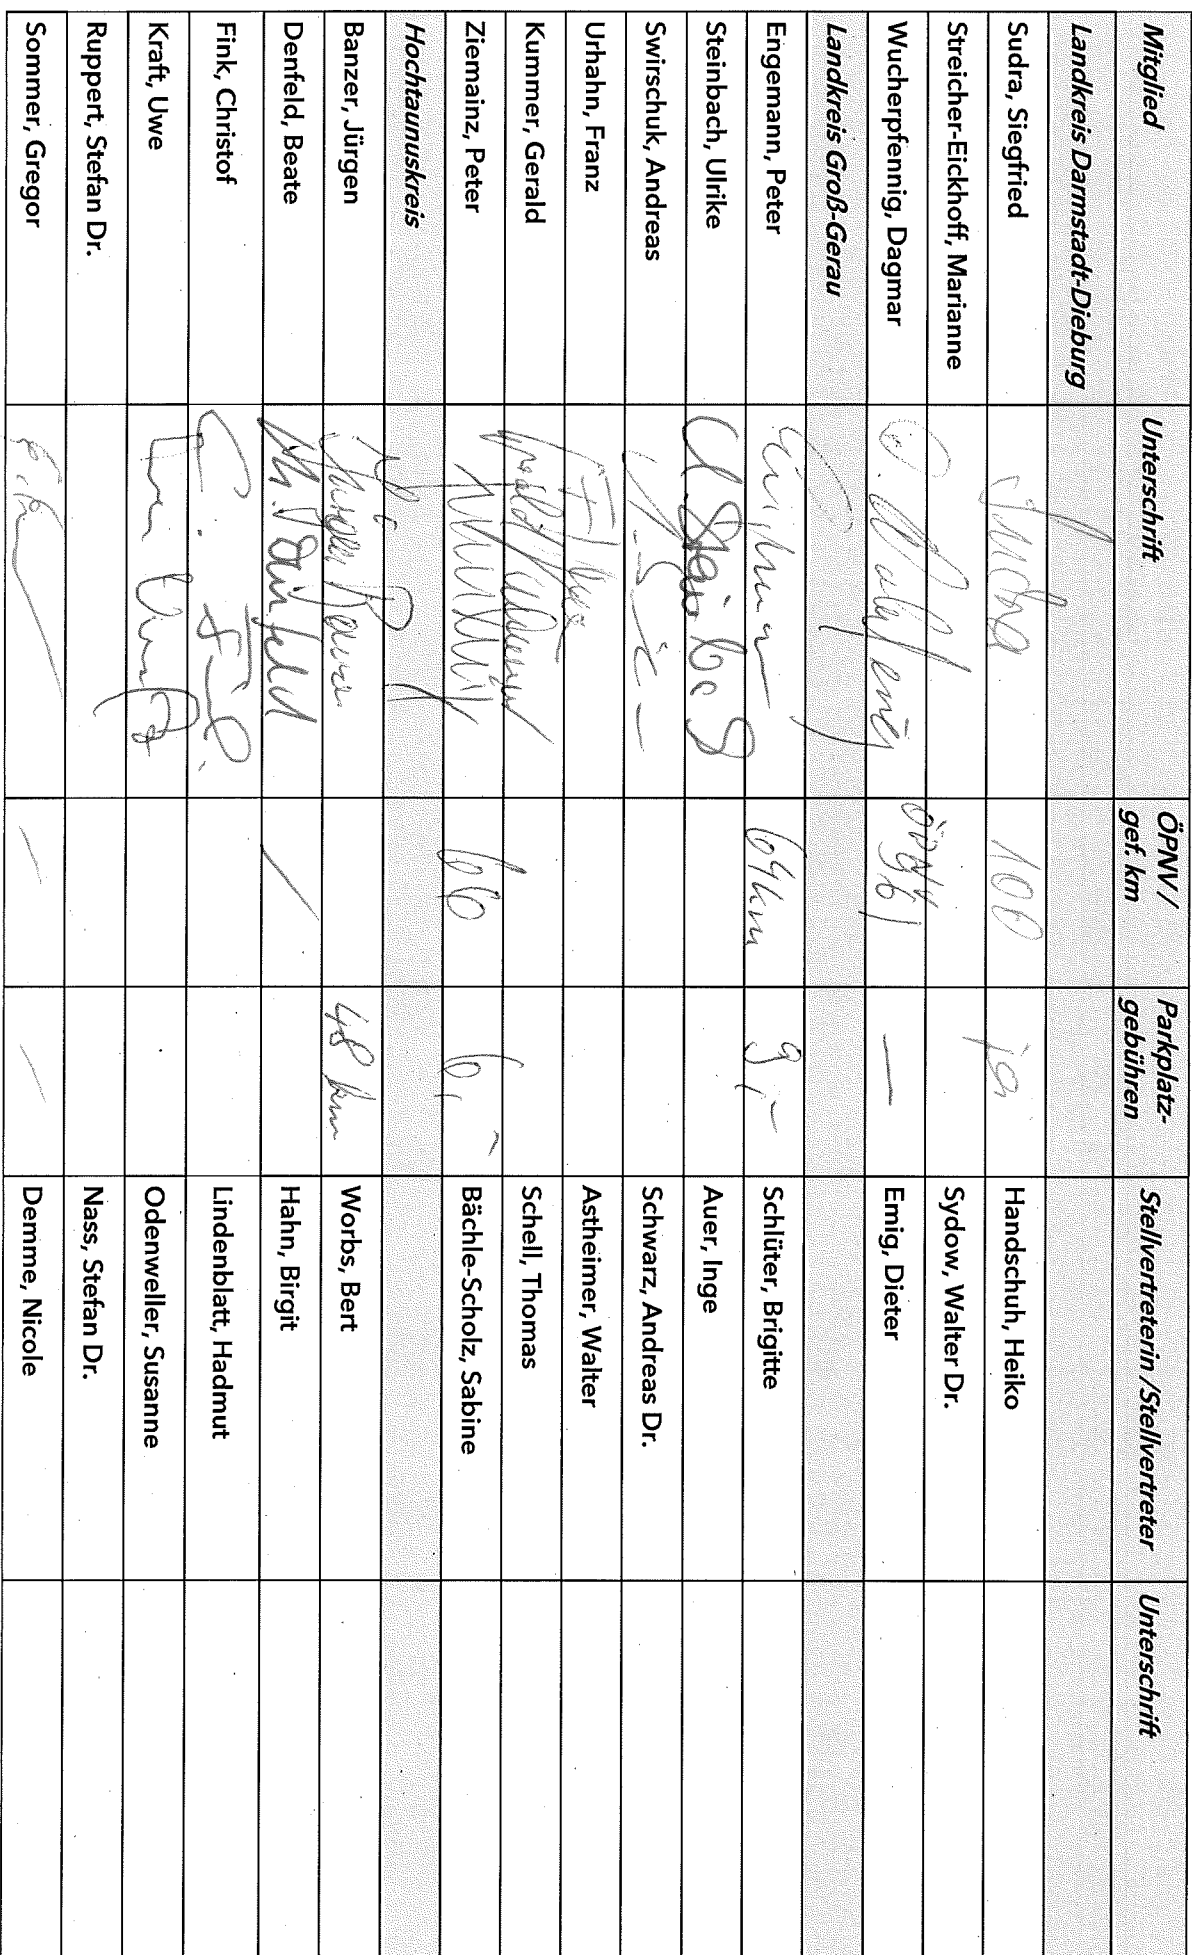 Mitglied Unterschrift ÖPNV / gef. km Parkplatz-gebühren Stellvertreterin /Stellvertreter Unterschrift
Landkreis Darmstadt-Dieburg
Sudra, Siegfried Sudra 100 ja Handschuh, Heiko
Streicher-Eickhoff, Marianne Sydow, Walter Dr.
Wucherpfennig, Dagmar ÖPNV — Emig, Dieter
Landkreis Groß-Gerau
Engemann, Peter 64 km 9,- Schlüter, Brigitte
Steinbach, Ulrike U Steinbach Auer, Inge
Swirschuk, Andreas Schwarz, Andreas Dr.
Urhahn, Franz Astheimer, Walter
Kummer, Gerald Gerald Kummer Schell, Thomas
Ziemainz, Peter 66 6,- Bächle-Scholz, Sabine
Hochtaunuskreis
Banzer, Jürgen Jürgen Banzer 48 km Worbs, Bert
Denfeld, Beate Denfeld / Hahn, Birgit
Fink, Christof C. Fink Lindenblatt, Hadmut
Kraft, Uwe Uwe Kraft Odenweller, Susanne
Ruppert, Stefan Dr. Nass, Stefan Dr.
Sommer, Gregor — — Demme, Nicole